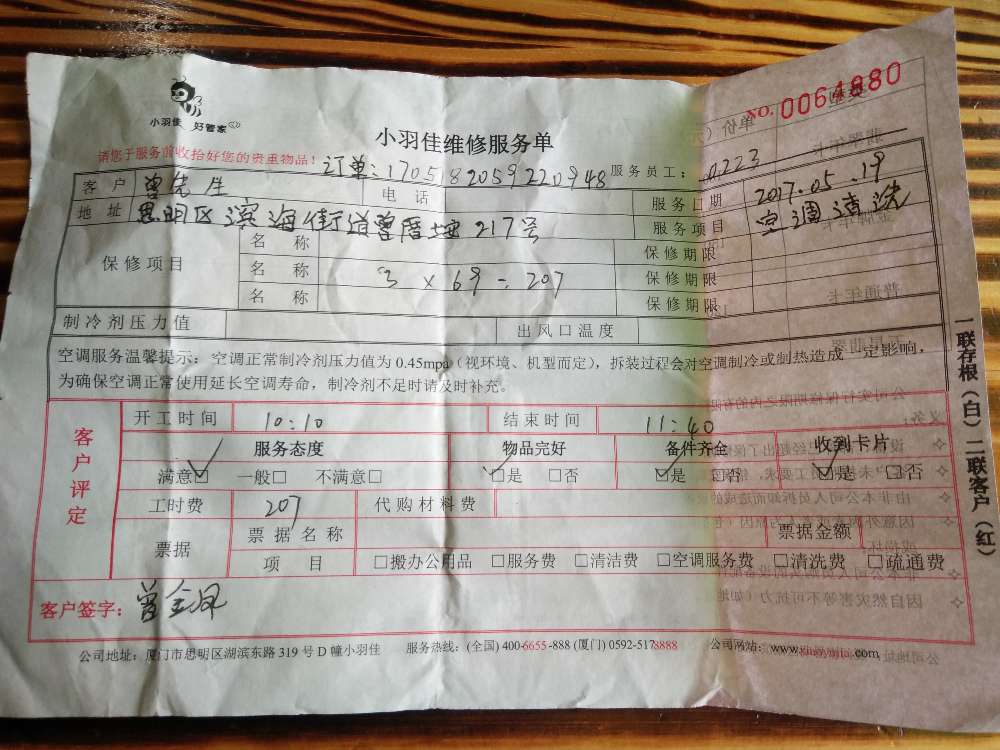 小羽佳 好管家
NO. 0064880
小羽佳维修服务单
请您于服务前收拾好您的贵重物品！ 订单：1705182059220948 服务员工： 0223
客户 曾先生 电话 服务日期 2017.05.19
地址 思明区滨海街道曾厝垵217号 服务项目 空调清洗
保修项目 名称 保修期限
名称 3×69=207 保修期限
名称 保修期限
制冷剂压力值 出风口温度
空调服务温馨提示：空调正常制冷剂压力值为 0.45mpa（视环境、机型而定），拆装过程会对空调制冷或制热造成一定影响，
为确保空调正常使用延长空调寿命，制冷剂不足时请及时补充。
客户评定
开工时间 10:10 结束时间 11:40
服务态度 物品完好 备件齐全 收到卡片
满意☑ 一般□ 不满意□ ☑是 □否 ☑是 □否 ☑是 □否
工时费 207 代购材料费
票据 票据名称 票据金额
项目 □搬办公用品 □服务费 □清洁费 □空调服务费 □清洗费 □疏通费
客户签字：
公司地址：厦门市思明区湖滨东路 319 号 D 幢小羽佳 服务热线：(全国) 400-6655-888 (厦门) 0592-5178888 公司网站：www.xiaoyujia.com
一联存根（白）二联客户（红）